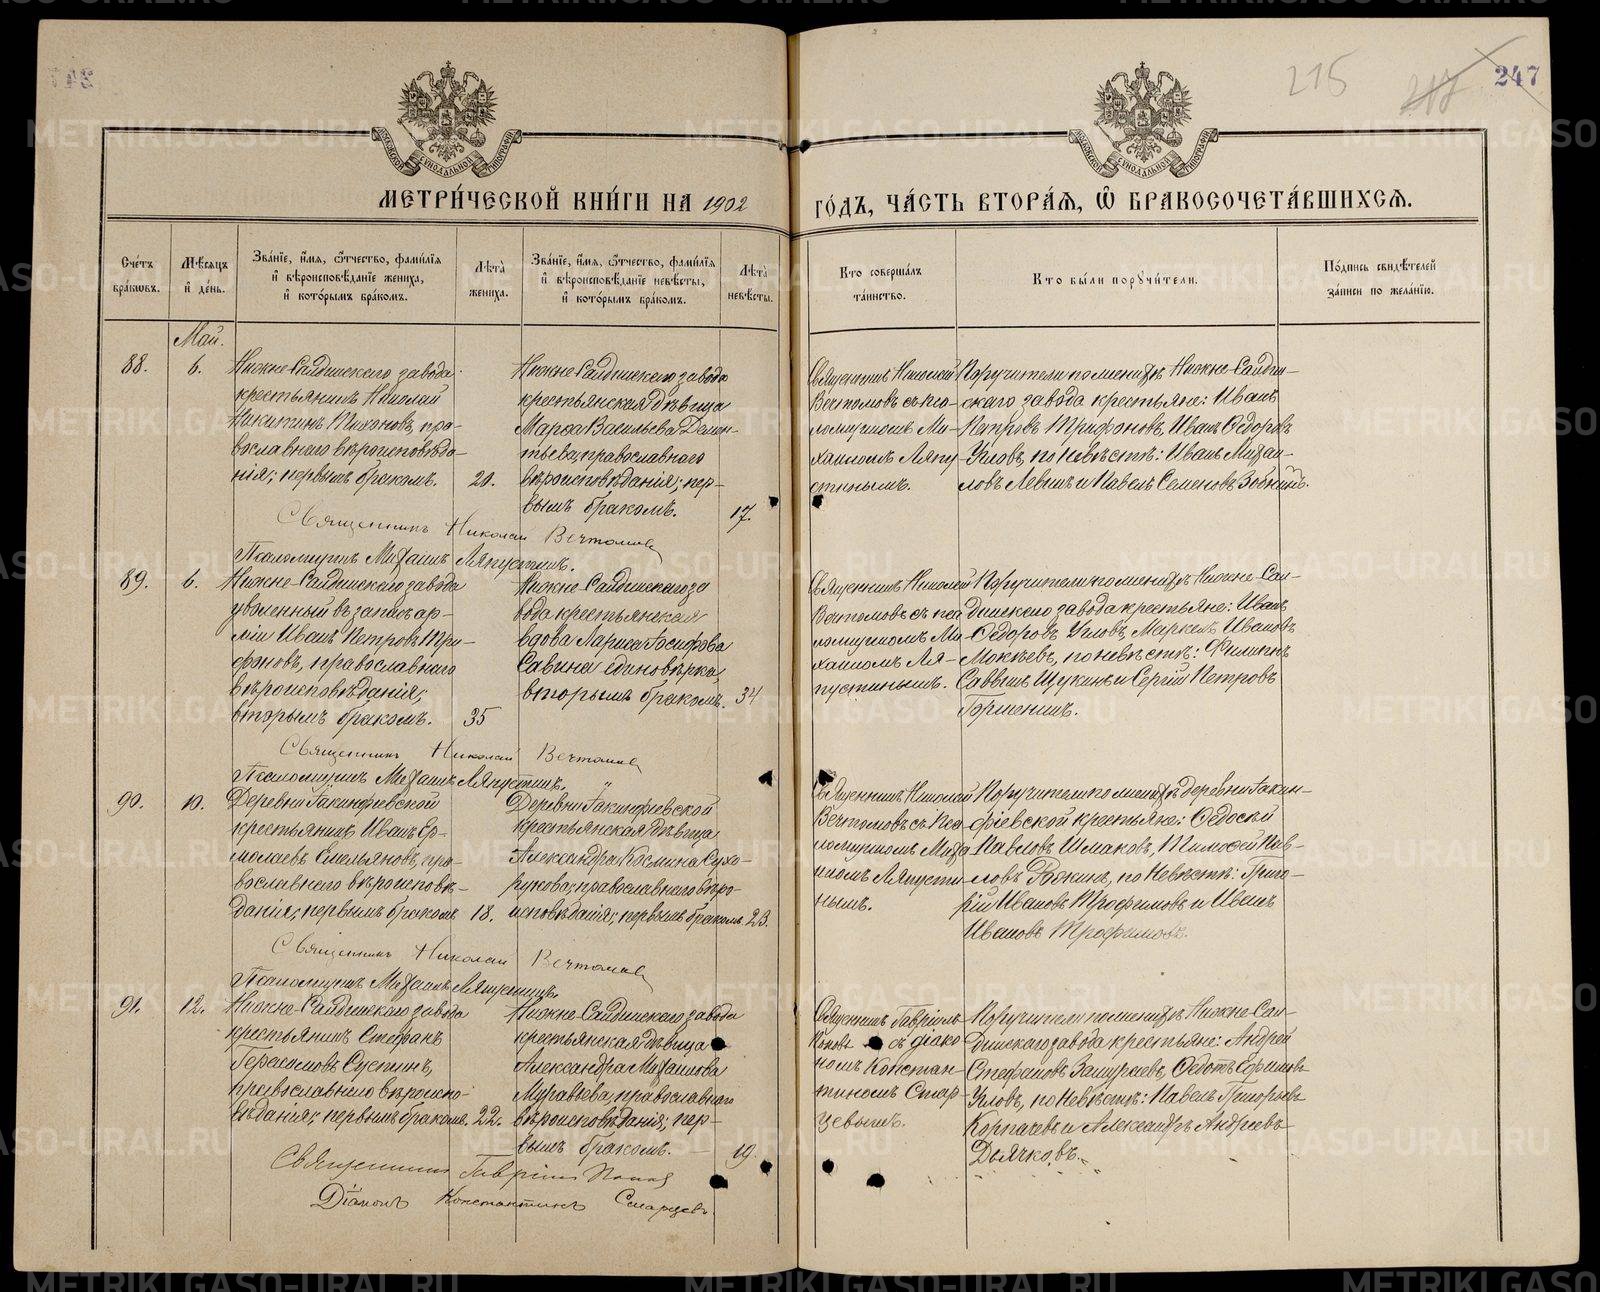 247
215
МЕТРИ́ЧЕСКОЙ КНИ́ГИ НА 1902
ГО́ДЪ, ЧА́СТЬ ВТОРА́Ѧ, Ѡ БРАКОСОЧЕТА́ВШИХСѦ.
Сче́тъ бра́ковъ.
Мѣ́сяцъ и де́нь.
Зва́нїе, и́мя, ѻ́тчество, фами́лїя и вѣроисповѣ́данїе жениха, и кото́рымъ бра́комъ.
Лѣта̀ жениха.
Зва́нїе, и́мя, ѻ́тчество, фами́лїя и вѣроисповѣ́данїе невѣ́сты, и кото́рымъ бра́комъ.
Лѣта̀ невѣ́сты.
Кто соверша́лъ та́инство.
Кто бы́ли поручи́тели.
По́дпись свидѣ́телей за́писи по жела́нїю.
Май.
88.
6.
Нижне-Салдинскаго завода
крестьянинъ Николай
Никитинъ Тихоновъ, пра-
вославнаго вѣроисповѣда-
нія; первымъ бракомъ.
20.
Нижне-Салдинскаго завода
крестьянская дѣвица
Марѳа Васильева Демен-
тьева, православнаго
вѣроисповѣданія; пер-
вымъ бракомъ.
17.
Священникъ Николай
Вечтомовъ съ пса-
ломщикомъ Ми-
хаиломъ Ляпу-
стинымъ.
Поручители по женихѣ Нижне-Салдин-
скаго завода крестьяне: Иванъ
Петровъ Трифоновъ, Иванъ Ѳедоровъ
Угловъ, по невѣстѣ: Иванъ Михаи-
ловъ Левшъ и Павелъ Семеновъ Зобнинъ.
Священникъ Николай Вечтомовъ
Псаломщикъ Михаилъ Ляпустинъ.
89.
6.
Нижне-Салдинскаго завода
уволенный въ запасъ ар-
міи Иванъ Петровъ Три-
фоновъ, православнаго
вѣроисповѣданія;
вторымъ бракомъ.
35
Нижне-Салдинскаго за
вода крестьянская
вдова Лариса Іосифова
Савина единовѣрка,
вторымъ бракомъ.
34
Священникъ Николай
Вечтомовъ съ пса
ломщикомъ Ми-
хаиломъ Ля-
пустинымъ.
Поручители по женихѣ Нижне-Сал-
динскаго завода крестьяне: Иванъ
Ѳедоровъ Угловъ, Маркелъ Ивановъ
Мокѣевъ, по невѣстѣ: Филиппъ
Саввинъ Щукинъ и Сергій Петровъ
Горшенинъ.
Священникъ Николай Вечтомовъ
Псаломщикъ Михаилъ Ляпустинъ.
90.
10.
Деревни Іакинфіевской
крестьянинъ Иванъ Ер-
молаевъ Емельяновъ, пра-
вославнаго вѣроисповѣ-
данія; первымъ бракомъ
18.
Деревни Іакинфіевской
крестьянская дѣвица
Александра Космина Сухо-
рукова, православнаго вѣро-
исповѣданія; первымъ бракомъ.
23.
Священникъ Николай
Вечтомовъ съ пса
ломщикомъ Миха
иломъ Ляпусти-
нымъ.
Поручители по женихѣ деревни Іакин-
фіевской крестьяне: Ѳедосѣй
Павловъ Шмаковъ, Тимоѳей Пав-
ловъ Рожинъ, по невѣстѣ: Григо-
рій Ивановъ Трофимовъ и Иванъ
Ивановъ Трофимовъ.
Священникъ Николай Вечтомовъ
Псаломщикъ Михаилъ Ляпустинъ.
91.
12.
Нижне-Салдинскаго завода
крестьянинъ Стефанъ
Герасимовъ Сустинъ,
православнаго вѣроиспо-
вѣданія; первымъ бракомъ.
22.
Нижне-Салдинскаго завода
крестьянская дѣвица
Александра Михаилова
Муравьева, православнаго
вѣроисповѣданія; пер-
вымъ бракомъ.
19.
Священникъ Гавріилъ
съ діако
номъ Констан-
тиномъ Стар
цевымъ.
Поручители по женихѣ Нижне-Сал-
динскаго завода крестьяне: Андрей
Стефановъ Замураевъ, Ѳедотъ Ефимовъ
Угловъ, по невѣстѣ: Павелъ Григорьевъ
Корпачевъ и Александръ Андреевъ
Дьячковъ.
Священникъ Гавріилъ
Діаконъ Константинъ Старцевъ.
METRIKI.GASO-URAL.RU